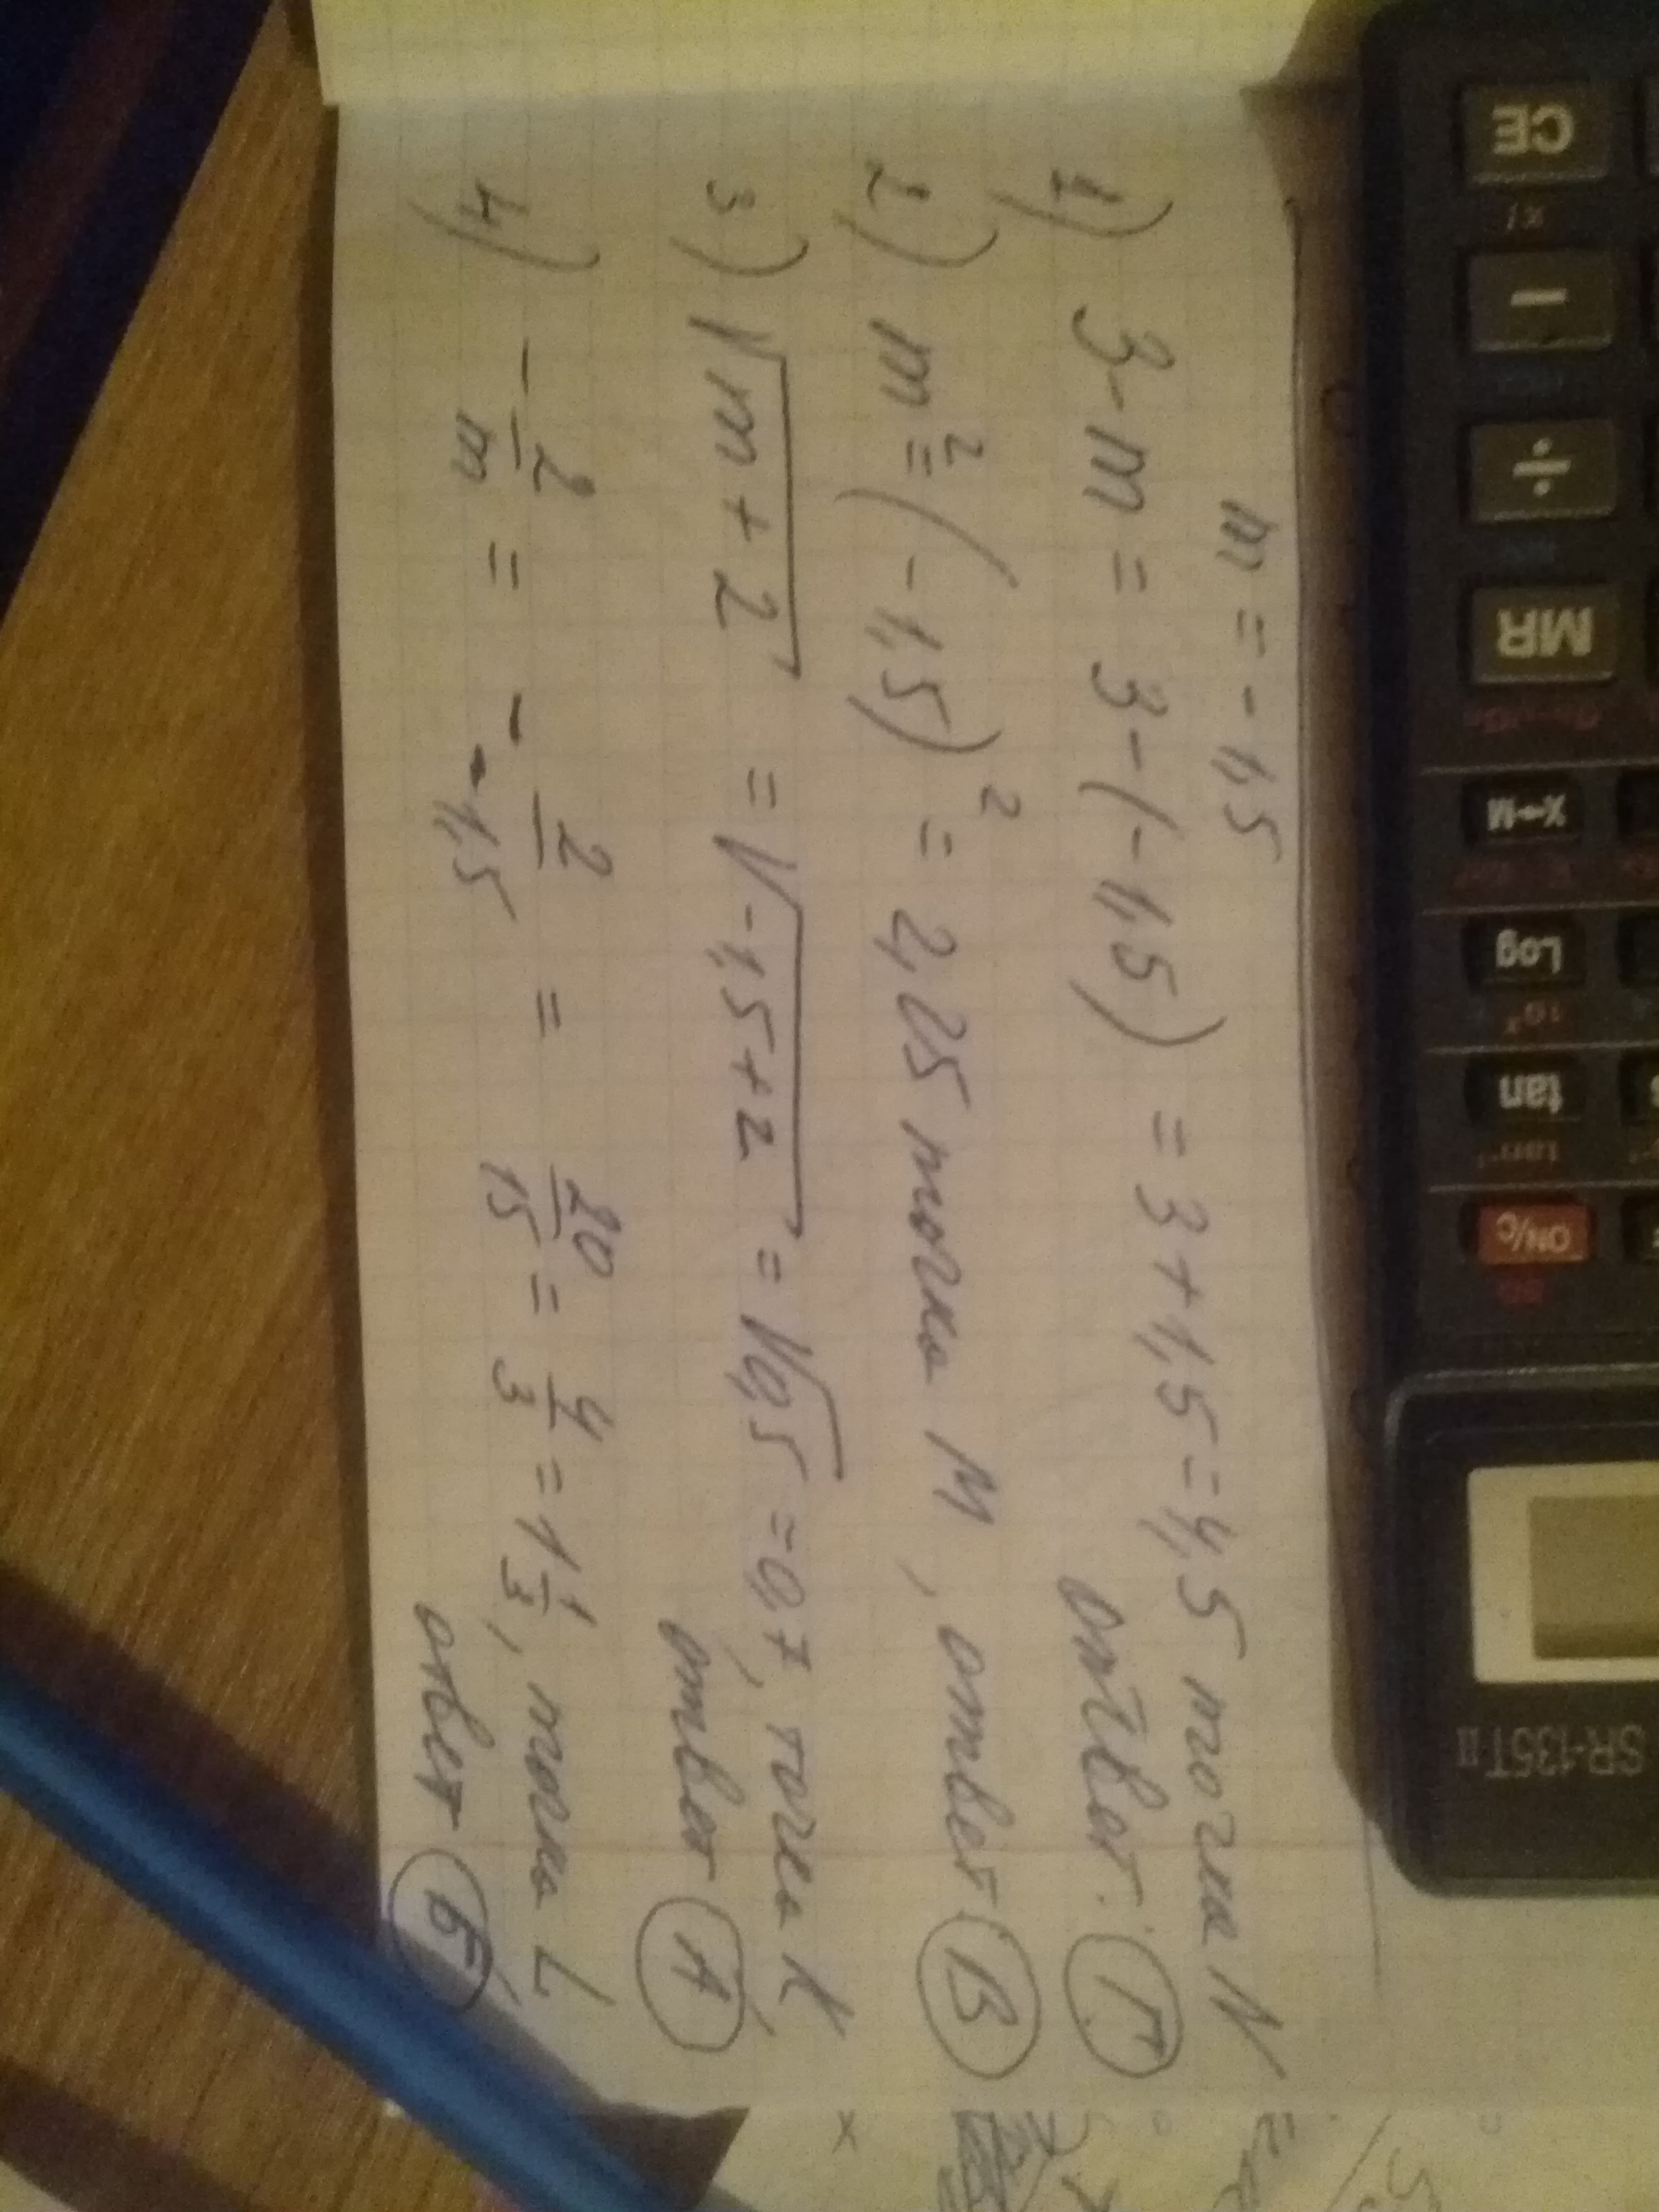 m = -1,5
1) 3-m = 3-(-1,5) = 3+1,5=4,5 точка N
ответ: Г
2) m²=(-1,5)² = 2,25 точка M, ответ В
3) √m+2 = √-1,5+2 = √0,5 = 0,7, точка K
ответ А
4) -2/m = - 2/-1,5 = 20/15 = 4/3 = 1 1/3, точка L
ответ Б
CE
MR
X→M
Log
tan
ON/C
SR-135T II